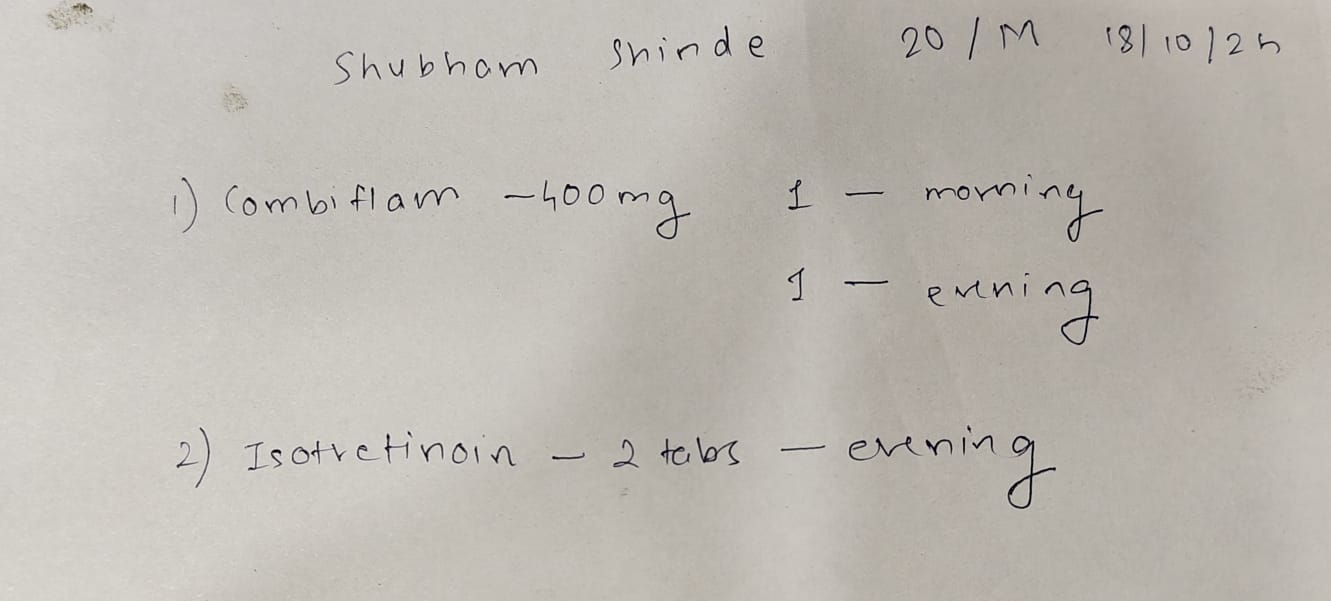 Shubham Shinde 20/M 18/10/25
1) Combiflam - 400mg 1 - morning
1 - evening
2) Isotretinoin - 2 tabs - evening